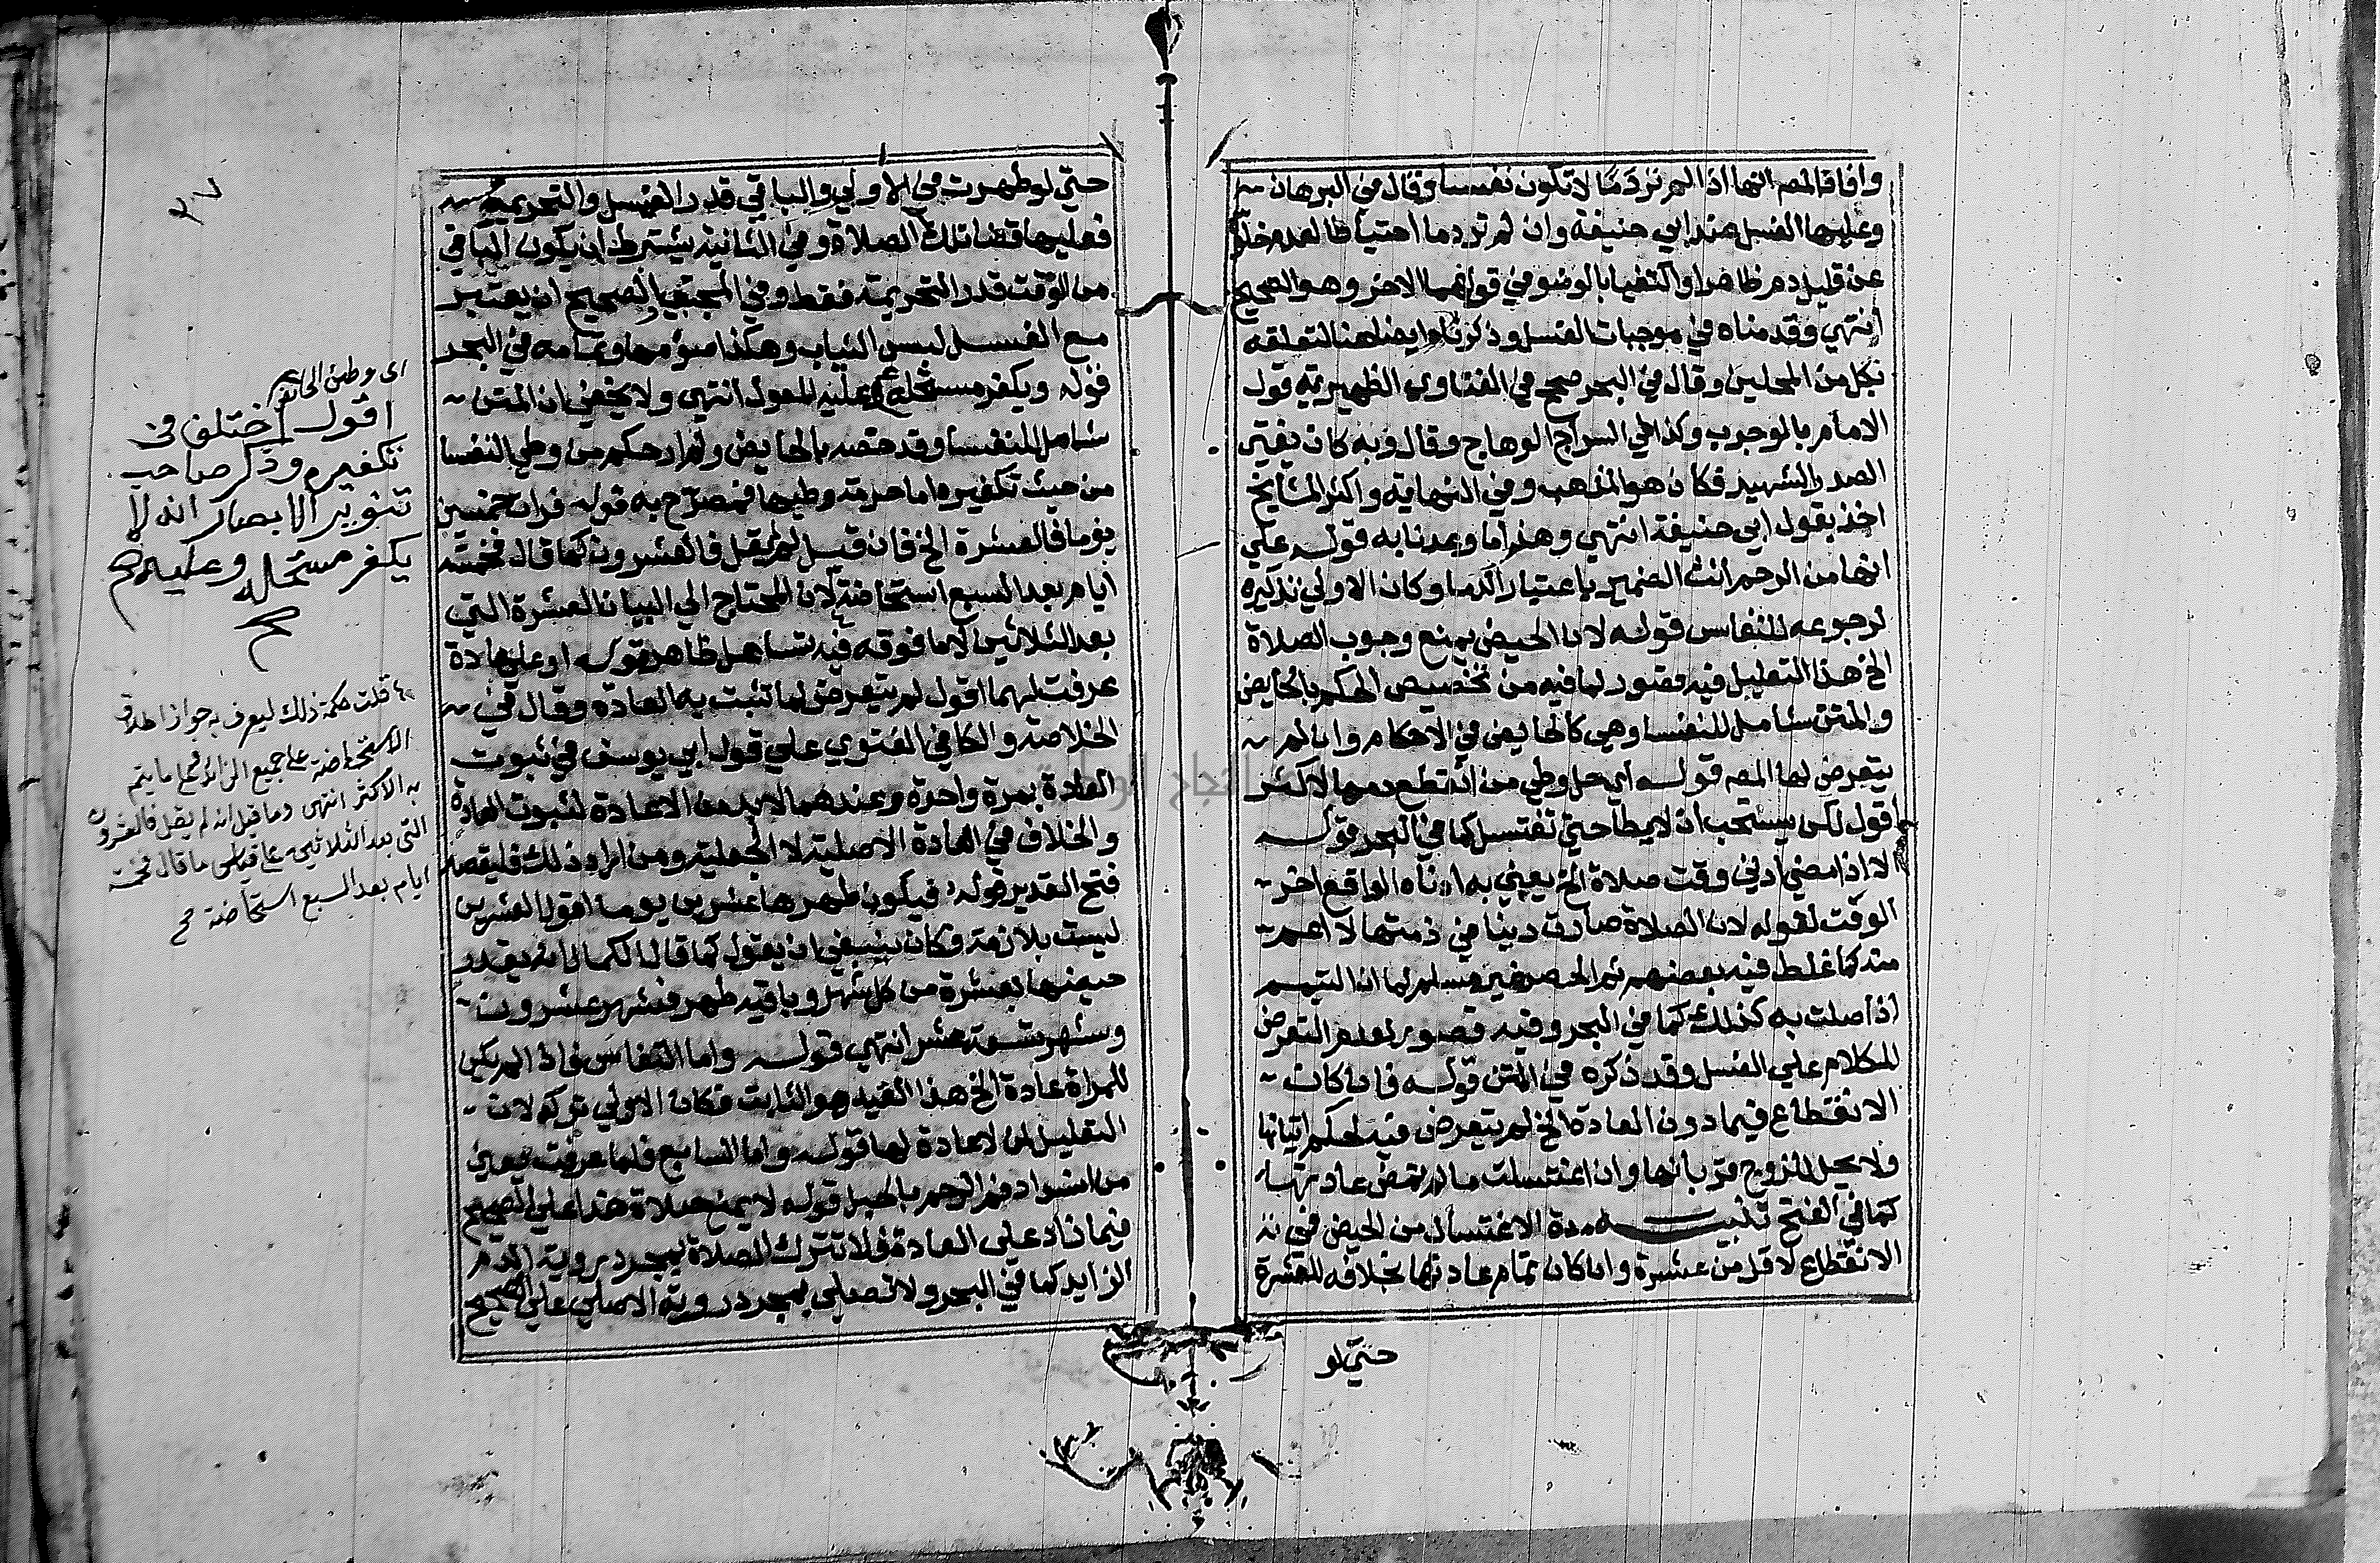 وافاق المص انها اذا لم تر دما لا تكون نفسا وقال في البرهان
وعليها الغسل عند ابي حنيفة وان لم تر دما احتياطا لعدم خلوه
عن قليل دم ظاهرا واكتفيا بالوضو في قولهما الاخر وهو الصحيح
انتهي وقدمناه في موجبات الغسل وذكرناه ايضا هنا لتعلقه
بكل من المحلين وقال في البحر صحح في الفتاوي الظهيرية قول
الامام بالوجوب وكذا في السراج الوهاج وقال وبه كان يفتي
الصدر الشهيد فكان هو المذهب وفي النهاية واكثر المشايخ
اخذ بقول ابي حنيفة انتهي وهذا ما وعدنا به قوله علي
انها من الرحم انث الضمير باعتبار الدما وكان الاولي تذكيره
لرجوعه للنفاس قوله لان الحيض يمنع وجوب الصلاة
الخ هذا التعليل فيه قصور لما فيه من تخصيص الحكم بالحايض
والمتن شامل للنفسا وهي كالحايض في الاحكام وان لم
يتعرض لها المص قوله اي حل وطي من انقطع دمها لاكثر
اقول لكن يستحب ان لا يطا حتي تغتسل كما في البحر قوله
لا اذا مضي ادني وقت صلاة الخ يعني به ادناه الواقع اخر
الوقت لقوله لان الصلاة صارت دينا في ذمتها لا اعم
منه كما غلط فيه بعضهم ثم الحصر غير مسلم لما ان التيمم
اذا صلت به كذلك كما في البحر وفيه قصور لعدم التعرض
للكلام علي الغسل وقد ذكره في المتن قوله فان كان
الانقطاع فيما دون العادة الخ لم يتعرض فيه لحكم اتيانها
ولا يحل للزوج قربانها وان اغتسلت ما لم تمض عادتها
كما في الفتح تنبيه مدة الاغتسال من الحيض في
الانقطاع لاقل من عشرة وان كان تمام عادتها بخلافه للعشرة
حتي لو
حتي لو طهرت في الاولي والباقي قدر الغسل والتحريمة
فعليها قضا تلك الصلاة وفي الثانية يشترط ان يكون الباقي
من الوقت قدر التحريمة فقط وفي المجتبي والصحيح ان يعتبر
مع الغسل لبس الثياب وهكذا صومها وتمامه في البحر
قوله ويكفر مستحله وعليه المعول انتهي ولا يخفي ان المتن
شامل للنفسا وقد خصه بالحايض ولم ار حكم من وطي النفسا
من حيث تكفيره اما حرمة وطيها فمصرح به قوله فرات خمسين
يوما فالعشرة الخ فان قيل لم لم يقل فالعشرون كما قال فخمسة
ايام بعد السبع استحاضة لان المحتاج الي البيان العشرة التي
بعد الثلاثين لا ما فوقه فيه تساهل ظاهر قوله او علي عادة
عرفت لهما اقول لم يتعرض لما تثبت به العادة وقال في
الخلاصة والكافي الفتوي علي قول ابي يوسف في ثبوت
العادة بمرة واحدة وعندهما لابد من الاعادة لثبوت العادة
والخلاف في العادة الاصلية لا الجعلية ومن اراد ذلك فليقصد
فتح القدير قوله فيكون طهرها عشرين يوما اقول العشرين
ليست بلازمة وكان ينبغي ان يقول كما قال الكمال انه يقدر
حيضها بعشرة من كل شهر وباقيه طهر فشهر عشرون
وشهر تسعة عشر انتهي قوله واما النفاس فاذا لم يكن
للمراة عادة الخ هذا القيد هو الثابت فكان الاولي تركه لان
التعليل ان لا عادة لها قوله واما السابع فلما عرفت يعني
من انسداد فم الرحم بالحبل قوله لا يمنع صلاة هذا علي الصحيح
فيما زاد علي العادة فلا تترك الصلاة بمجرد روية الدم
الزايد كما في البحر ولا تصلي بمجرد روية الاصلي علي الصحيح
اي وطئ الحايض
اقول اختلف في
تكفيره وذكر صاحب
تنوير الابصار انه لا
يكفر مستحله وعليه
قلت حكمة ذلك ليعرف به جواز اطلاق
الاستحاضة على جميع الزائد وعلى ما يتم
به الاكثر انتهى وما قيل انه لم يقل فالعشرون
التي بعد الثلاثين على قياس ما قال فخمسة
ايام بعد السبع استحاضة